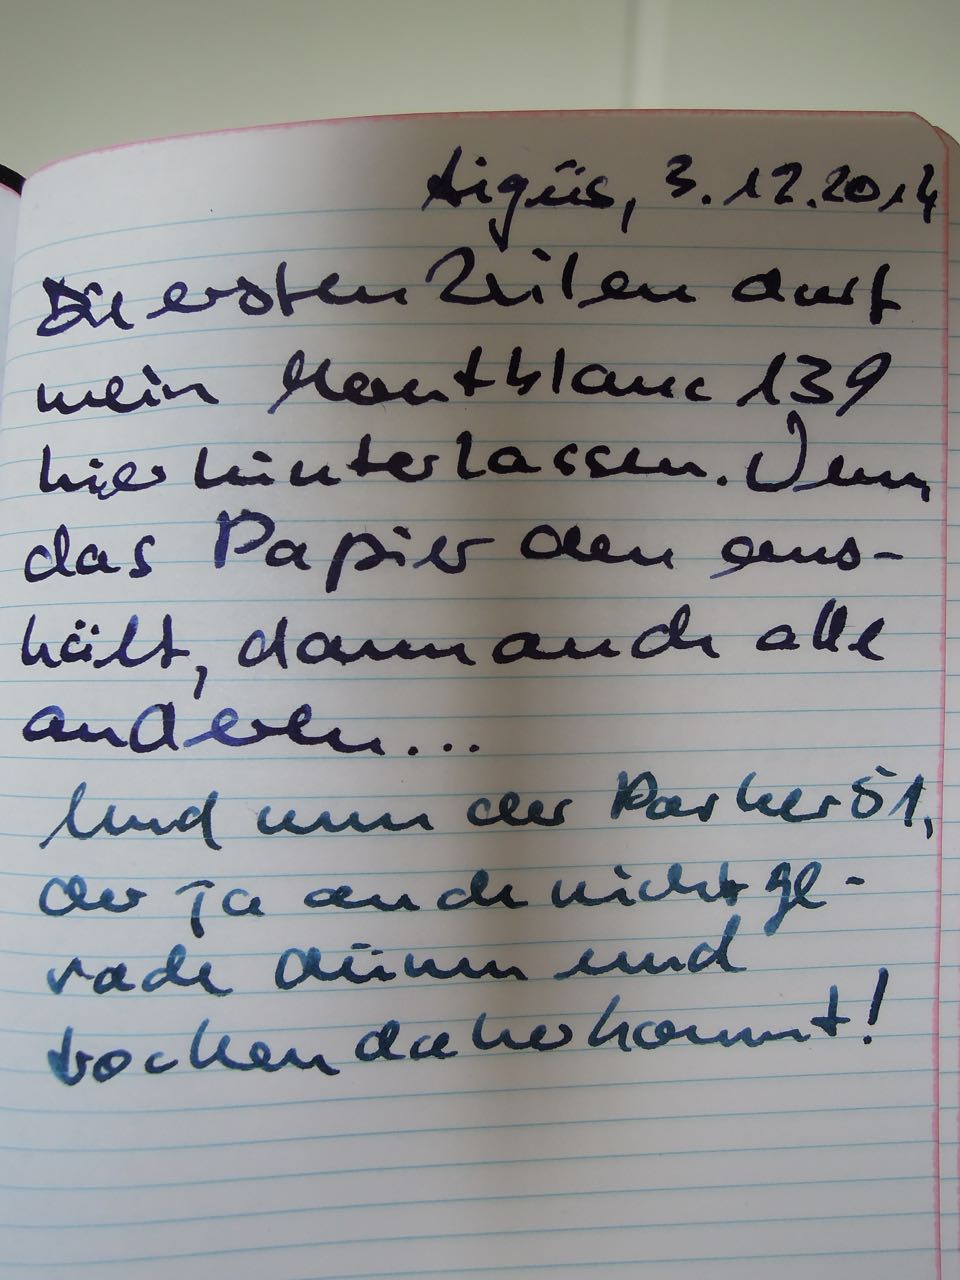 Aigüs, 3.12.2014
Die ersten Zeilen darf
mein Montblanc 139
hier hinterlassen. Wenn
das Papier den aus-
hält, dann auch alle
anderen...
Und nun der Parker 51,
der ja auch nicht ge-
rade dünn und
trocken daherkommt!